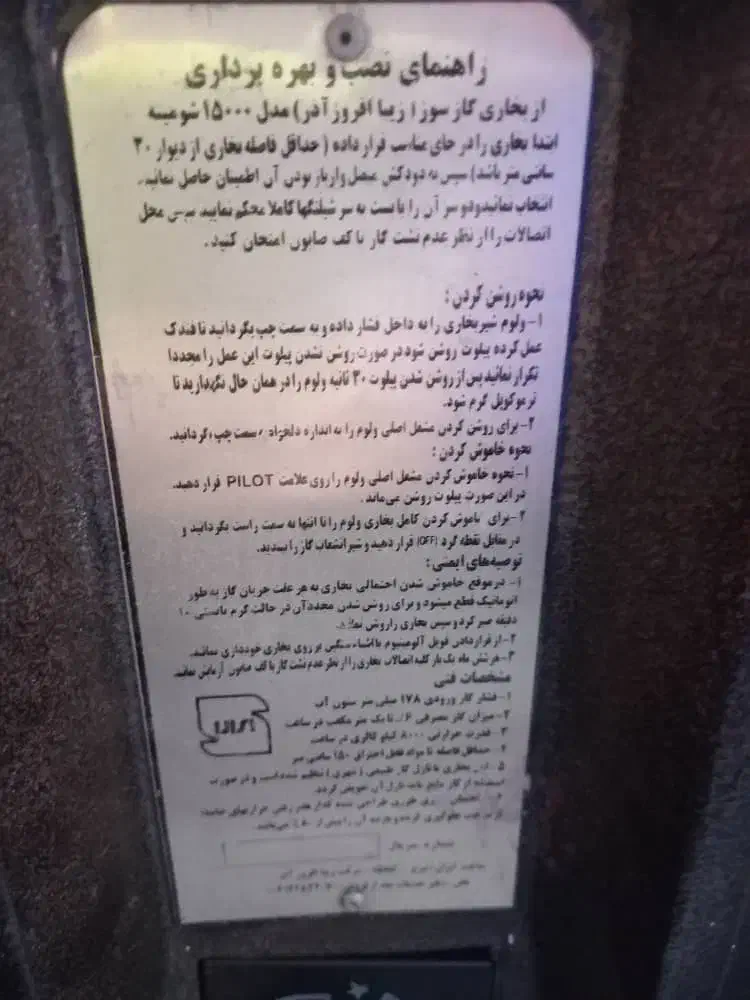 راهنمای نصب و بهره برداری
از بخاری گاز سوز ( زیبا افروز آذر ) مدل ۱۵۰۰۰ شومینه
ابتدا بخاری را در جای مناسب قرار داده ( حداقل فاصله بخاری از دیوار ۳۰
سانتی متر باشد ) سپس به دودکش متصل واز باز بودن آن اطمینان حاصل نمائید.
انتخاب نمائید ودو سر آن را بابست به سر شیلنگها کاملا محکم نمایید سپس محل
اتصالات را از نظر عدم نشت گاز با کف صابون امتحان کنید .
نحوه روشن کردن :
۱- ولوم شیر بخاری را به داخل فشار داده و به سمت چپ بگردانید تا فندک
عمل کرده پیلوت روشن شود در صورت روشن نشدن پیلوت این عمل را مجددا
تکرار نمائید پس از روشن شدن پیلوت ۳۰ ثانیه ولوم را در همان حال نگهدارید تا
ترموکوپل گرم شود.
۲- برای روشن کردن مشعل اصلی ولوم را به اندازه دلخواه به سمت چپ بگردانید.
نحوه خاموش کردن :
۱- نحوه خاموش کردن مشعل اصلی ولوم را روی علامت PILOT قرار دهید.
در این صورت پیلوت روشن می‌ماند .
۲- برای خاموش کردن کامل بخاری ولوم را تا انتها به سمت راست بگردانید و
در مقابل نقطه گرد (OFF) قرار دهید و شیر انشعاب گاز را ببندید.
توصیه‌های ایمنی :
۱- در موقع خاموش شدن احتمالی بخاری به هر علت جریان گاز به طور
اتوماتیک قطع میشود و برای روشن شدن مجدد آن در حالت گرم بایستی ۱۰
دقیقه صبر کرد و سپس بخاری را روشن نمائید.
۲- از قرار دادن فویل آلومینیوم یا اشیاء سنگین بر روی بخاری خودداری نمائید.
۳- هر شش ماه یک بار کلیه اتصالات بخاری را از نظر عدم نشت گاز با کف صابون آزمایش نمائید.
مشخصات فنی
۱- فشار گاز ورودی ۱۷۸ میلی متر ستون آب
۲- میزان گاز مصرفی ۰/۶ تا یک متر مکعب در ساعت
۳- قدرت حرارتی ۸۰۰۰ کیلو کالری در ساعت
۴- حداقل فاصله تا مواد قابل احتراق ۱۵۰ سانتی متر
۵- این بخاری با نازل گاز طبیعی ( شهری ) تنظیم شده است و در صورت
استفاده از گاز مایع باید نازل آن تعویض گردد.
شماره سریال